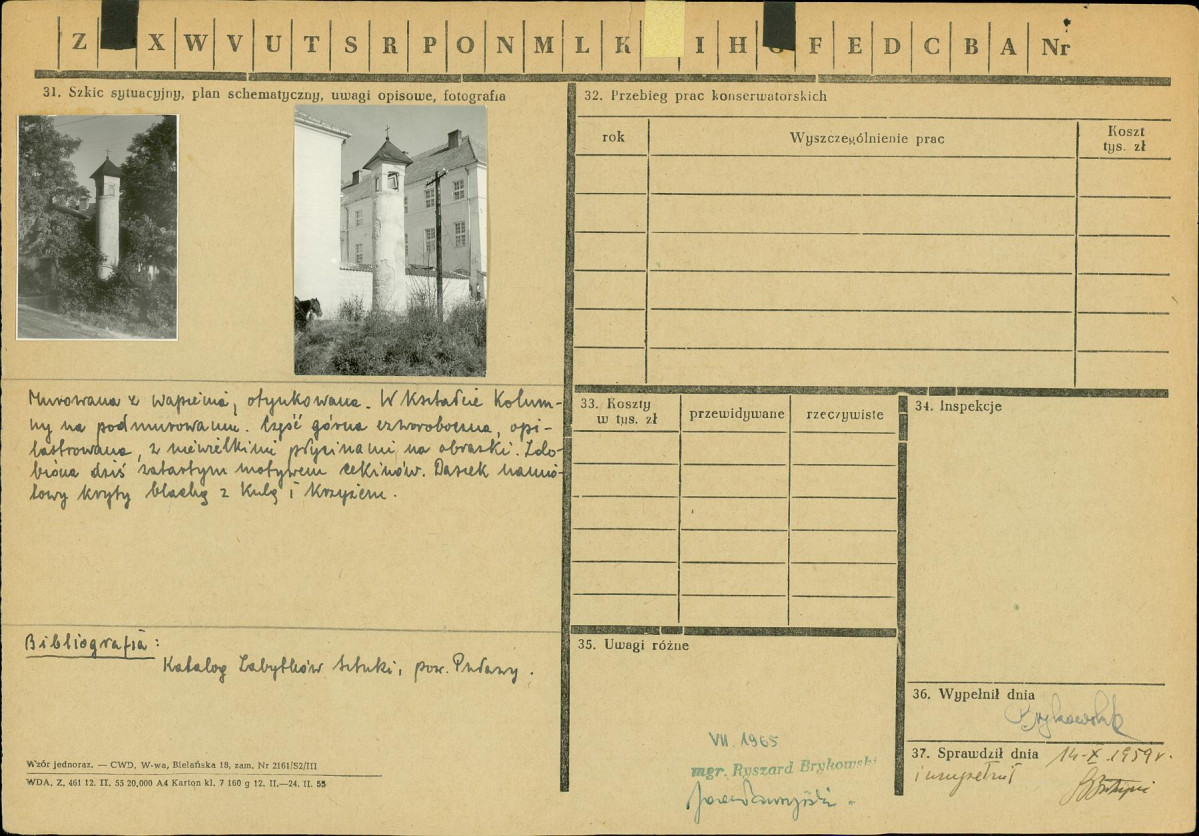 Z X W V U T S R P O N M L K I H G F E D C B A Nr
31. Szkic sytuacyjny, plan schematyczny, uwagi opisowe, fotografia
Murowana z wapienia, otynkowana. W kształcie kolum-
ny na podmurowaniu. Część górna czworoboczna, opi-
lastrowana, z niewielkimi płycinami na obrazki. Zdo-
biona dziś zatartym motywem cekinów. Daszek namio-
towy kryty blachą z kulą i krzyżem.
Bibliografia:
Katalog Zabytków Sztuki, pow. Puławy.
Wzór jednoraz. — CWD, W-wa, Bielańska 18, zam. Nr 2161/S2/III
WDA, Z, 461 12. II. 55 20,000 A4 Karton kl. 7 160 g 12. II.—24. II. 55
32. Przebieg prac konserwatorskich
rok
Wyszczególnienie prac
Koszt
tys. zł
33. Koszty
w tys. zł
przewidywane
rzeczywiste
34. Inspekcje
35. Uwagi różne
VII. 1965
mgr. Ryszard Brykowski
36. Wypełnił dnia
Brykowski
37. Sprawdził dnia 14-X.1959r.
i uzupełnił